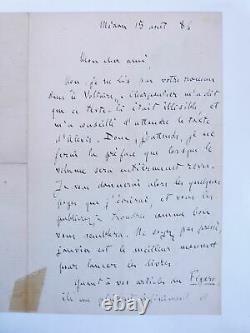 Médan 15 août 84
Mon cher ami,
Non, je ne lis pas votre roman
dans le Voltaire. Charpentier m'a dit
que ce texte-là était illisible, et
m'a conseillé d'attendre le texte
d'Alexis. Donc, j'attends, je ne
ferai la préface que lorsque le
volume sera entièrement revu.
Je vous donnerai alors les quelques
pages que j'écrirai, et vous les
publierez à Londres comme bon
vous semblera. Ne soyez pas pressé,
janvier est le meilleur moment
pour lancer les livres.
Quant à vos articles au Figaro
ils me